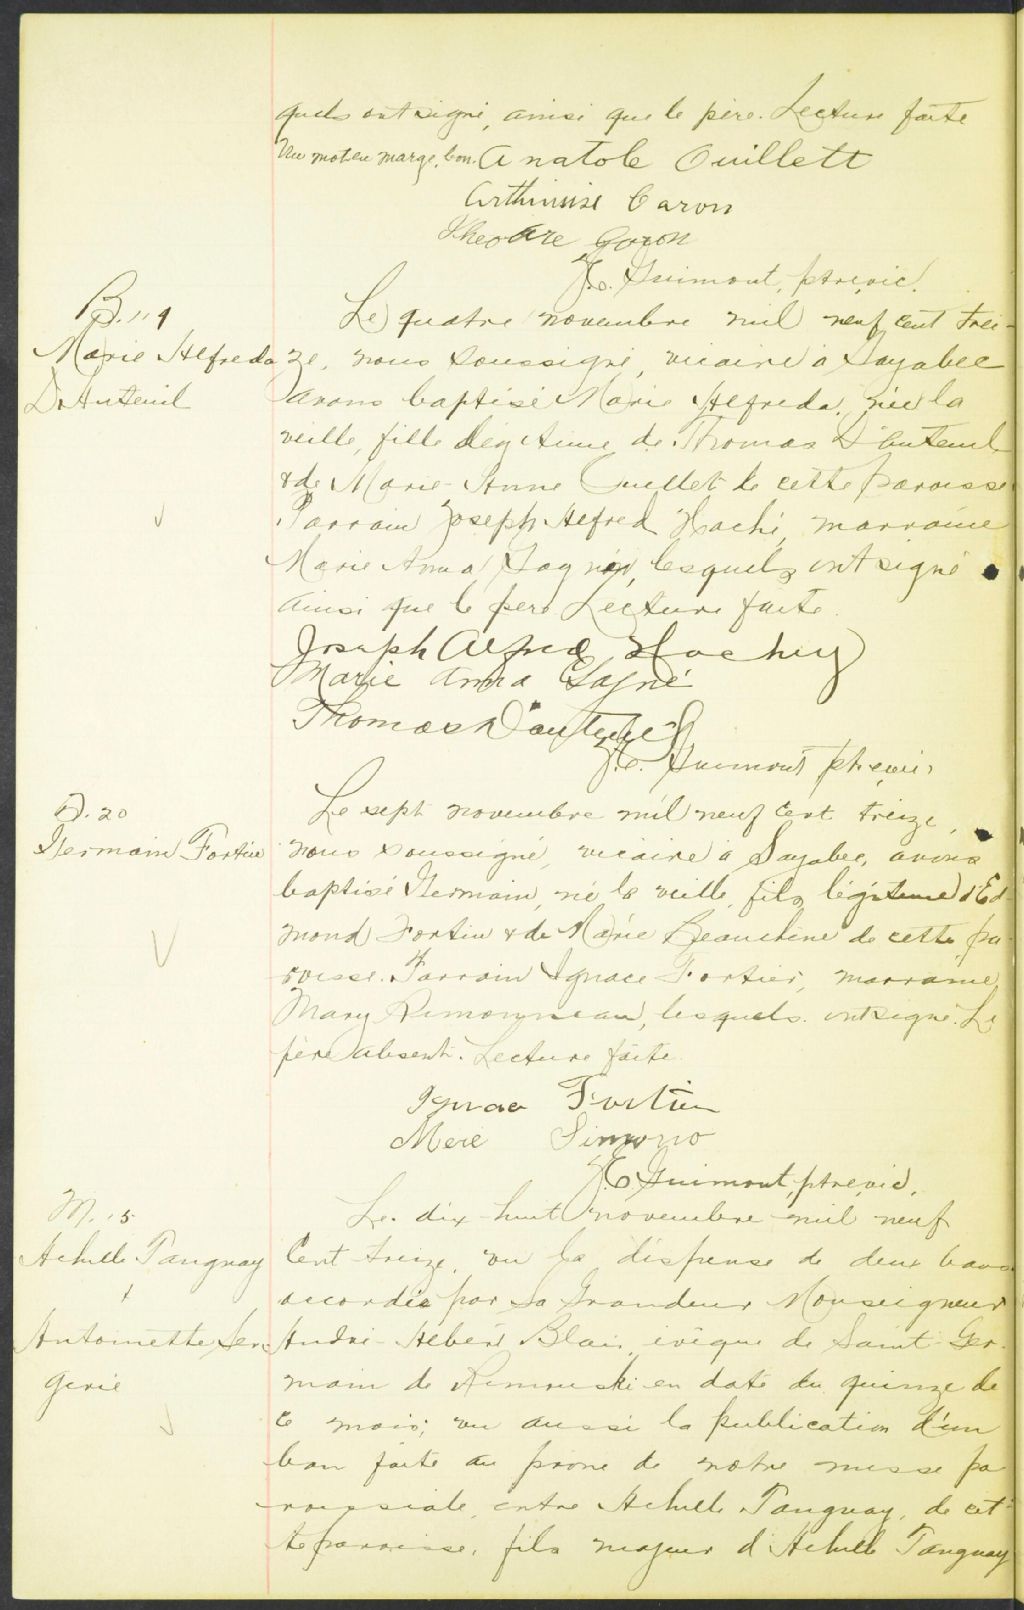 quels ont signé, ainsi que le père. Lecture faite
Un mot en marge, bon. Anatole Ouillett
Arthimise Caron
Theodre Goron
J.C. Guimont, ptre, vic.
B. 119
Marie Alfreda
D'Auteuil
Le quatre novembre mil neuf cent trei-
ze, nous soussigné, vicaire à Sayabec
avons baptisé Marie Alfreda, née la
veille, fille légitime de Thomas D'Auteuil
& de Marie-Anne Ouellet de cette paroisse
Parrain Joseph Alfred Haché, marraine
Marie Anna Gagné, lesquels ont signé
ainsi que le père. Lecture faite.
Joseph Alfred Hachey
Marie Anna Gagné
Thomas Dauteuil
J.C. Guimont ptre, vic.
B. 20
Germain Fortin
Le sept novembre mil neuf cent treize,
nous soussigné, vicaire à Sayabec, avons
baptisé Germain, né la veille, fils légitime d'Ed-
mond Fortin & de Marie Beauchêne de cette pa-
roisse. Parrain Ignace Fortier, marraine
Mary Rimonneau, lesquels ont signé. Le
père absent. Lecture faite.
Ignace Fortin
Mere Simono
J.C. Guimont, ptre, vic.
M. 15
Achille Tanguay
&
Antoinette Ler-
gerie
Le dix-huit novembre mil neuf
cent treize, vu la dispense de deux bans
accordée par Sa Grandeur Monseigneur
André-Albert Blais, évêque de Saint-Ger-
main de Rimouski en date du quinze de
ce mois; vu aussi la publication d'un
ban faite au prône de notre messe pa-
roissiale, entre Achille Tanguay, de cet-
te paroisse, fils majeur d'Achille Tanguay